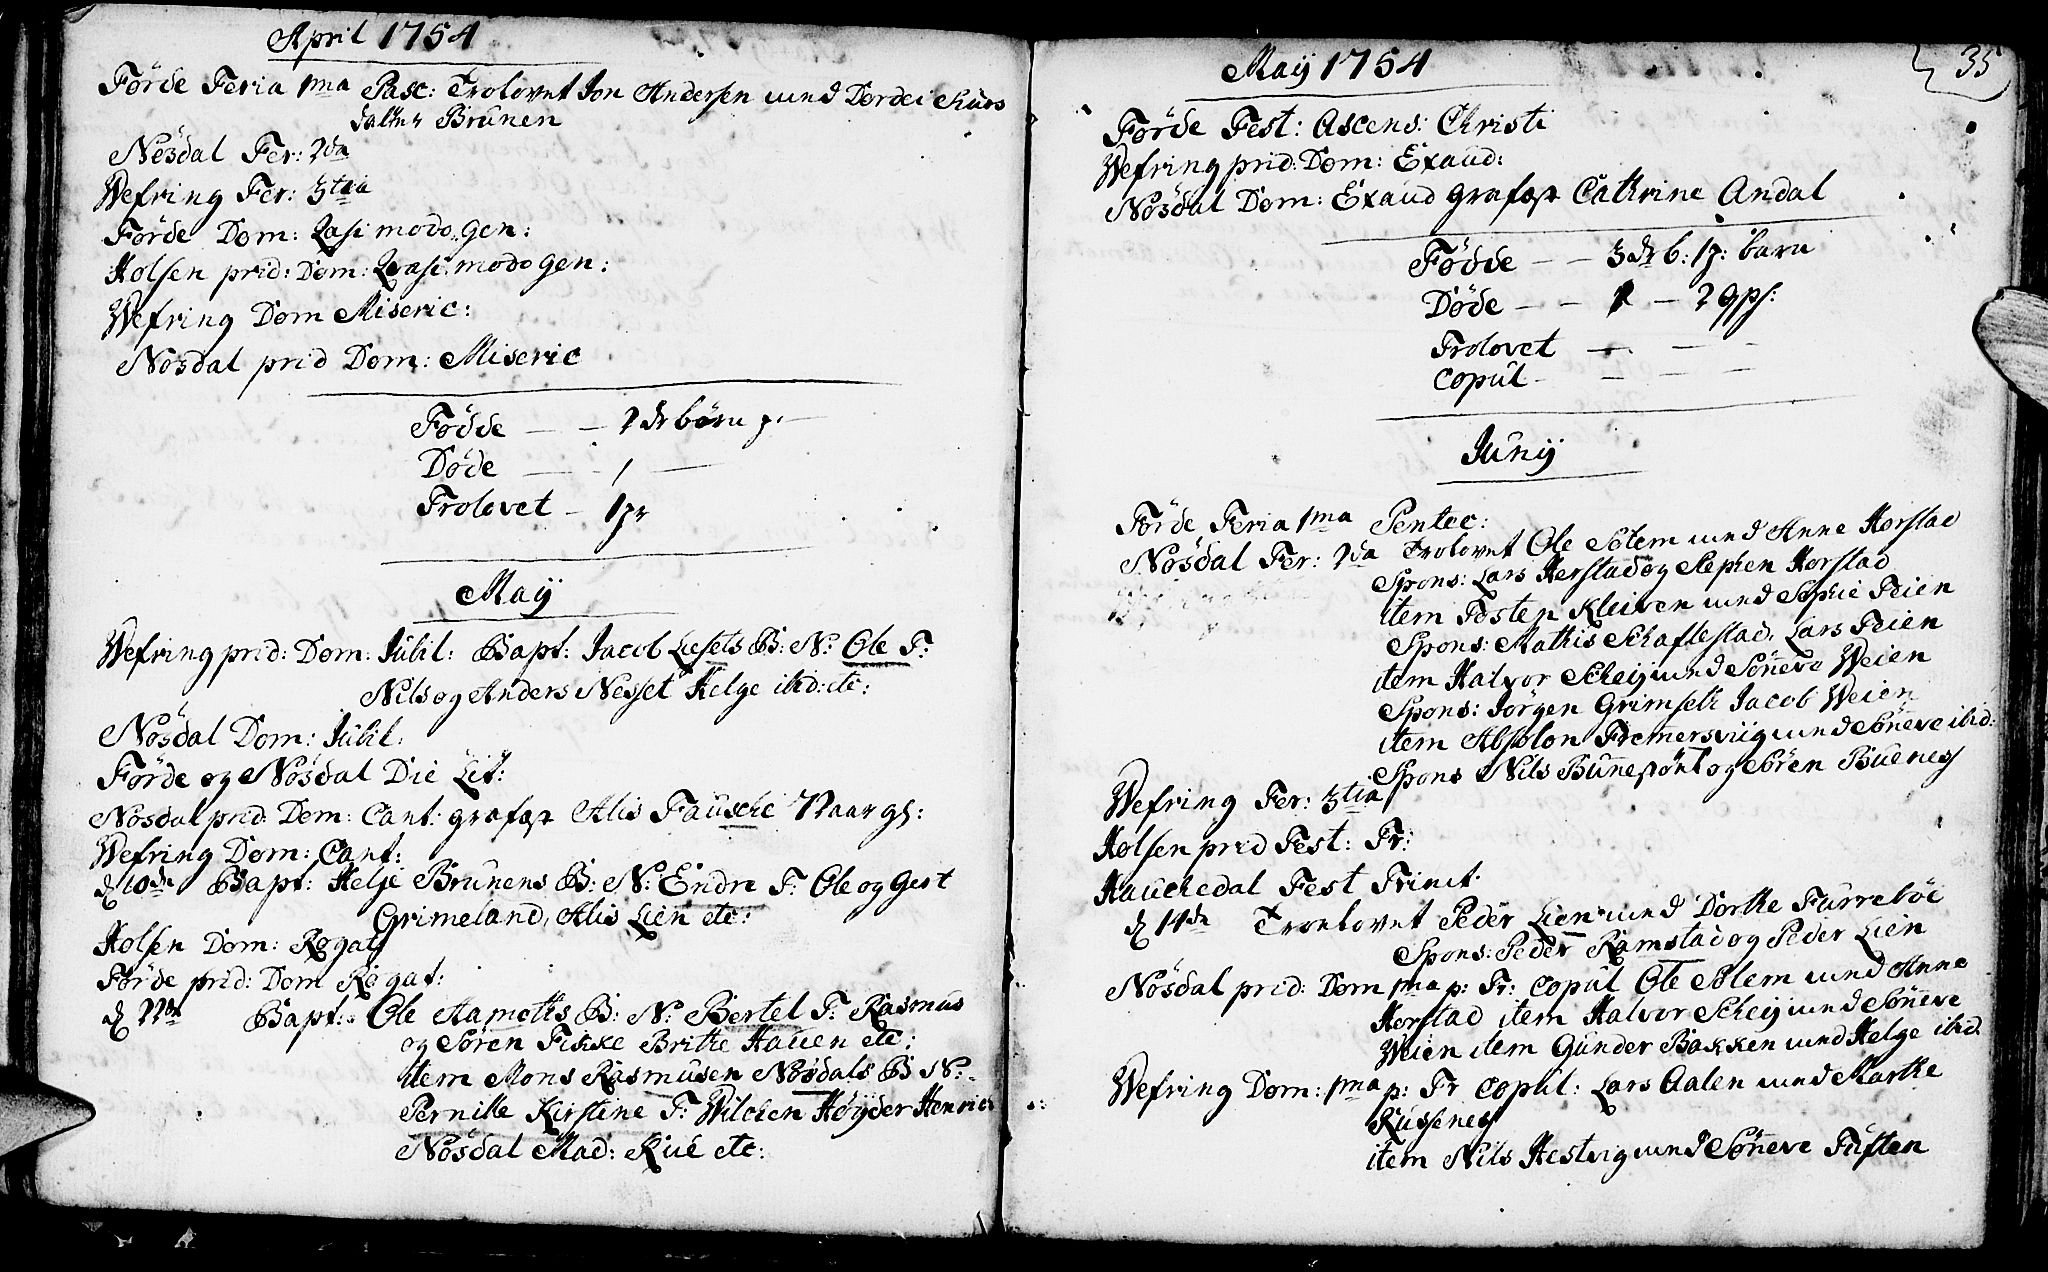 April 1754
Förde Feria 1ma Pasc: Trolovet Jon Andersen med Dordei
datter Brunen
Nösdal Fer: 2da
Wefring Fer: 3tia
Förde Dom: Qasi modo gen:
Holsen prid: Dom: Qvasi modo gen:
Wefring Dom Miseric:
Nösdal prid Dom: Miseric
Fødde — — 2 börn
Døde — —
Trolovet — 1 pr
Maij
Wefring prid: Dom: Jubil: Bapt: Jacob Liesets B: N: Ole F:
Nils og Anders Nesset Helge ibid: etc:
Nösdal Dom: Jubil:
Förde og Nösdal Die Lit:
Nösdal prid: Dom: Cant: grafæst Alis Fausche aar gl:
Wefring Dom: Cant:
d 10de Bapt: Helje Brunens B: N: Endre F: Ole og Gert
Grimeland, Alis Lien etc:
Holsen Dom: Rogat
Förde prid: Dom Rogat:
d 22de Bapt: Ole Aamoths B: N: Bertel F: Rasmus
og Sören Fikke Brithe Hauen etc:
item Mons Rasmusen Nösdals B N:
Pernille Kirstine F: Wilchen Höyder Henric
Nösdal Mad: Rue etc:
35
Maij 1754
Förde Fest: Ascens: Christi
Wefring prid: Dom: Exaud:
Nösdal Dom: Exaud grafæst Cathrine Andal
Födde — — 3 barn
Döde — — 2
Trolovet — — —
Copul — — —
Junij
Förde Feria 1ma Pentec:
Nösdal Fer: 2da Trolovet Ole Solem med Anne Horstad
Spons: Lars Herstad og Stephen Horstad
item Tosten Kleiven med Sophie Teien
Spons: Mathis Schaflestad, Lars Teien
item Halvor Scheij med Sönneve Weien
Spons: Jörgen Grimseth Jacob Weien
item Absolon Fremersviig med Sönneve ibid:
Spons Nils og Sören Buenes
Wefring Fer: 3tia
Holsen prid Fest: Tr:
Hauchedal Fest Trinit
d 14de Troelovet Peder Lien med Dorthe Furreböe
Spons: Peder Ramstad og Peder Lien
Nösdal prid: Dom 1ma p: Tr: Copul Ole Solem med Anne
Horstad item Halvor Scheij med Sönneve
Weien item Gunder Bakken med Helge ibid.
Wefring Dom: 1ma p: Tr Copul: Lars Aalen med Marthe
Russenes
item Nils Hestvig med Sönneve Tuften